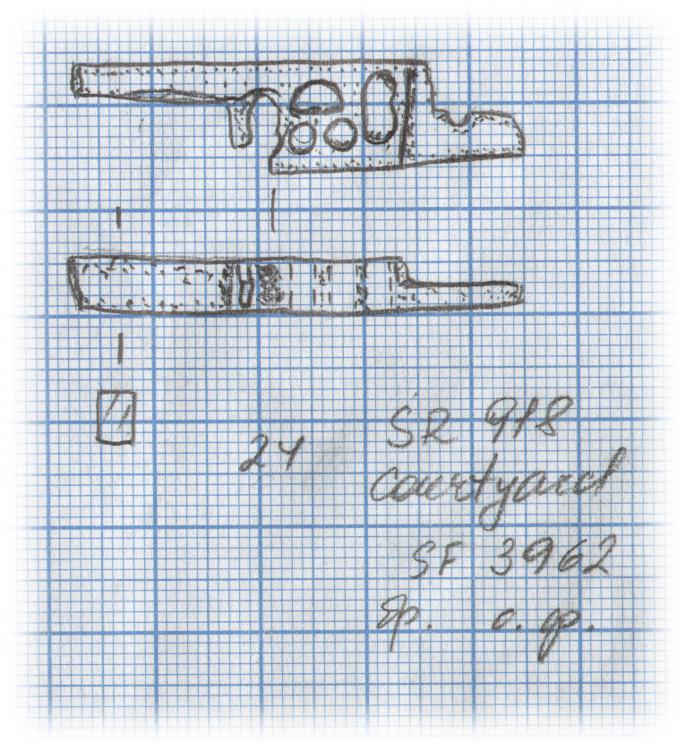 24
SR 918
courtyard
SF 3962